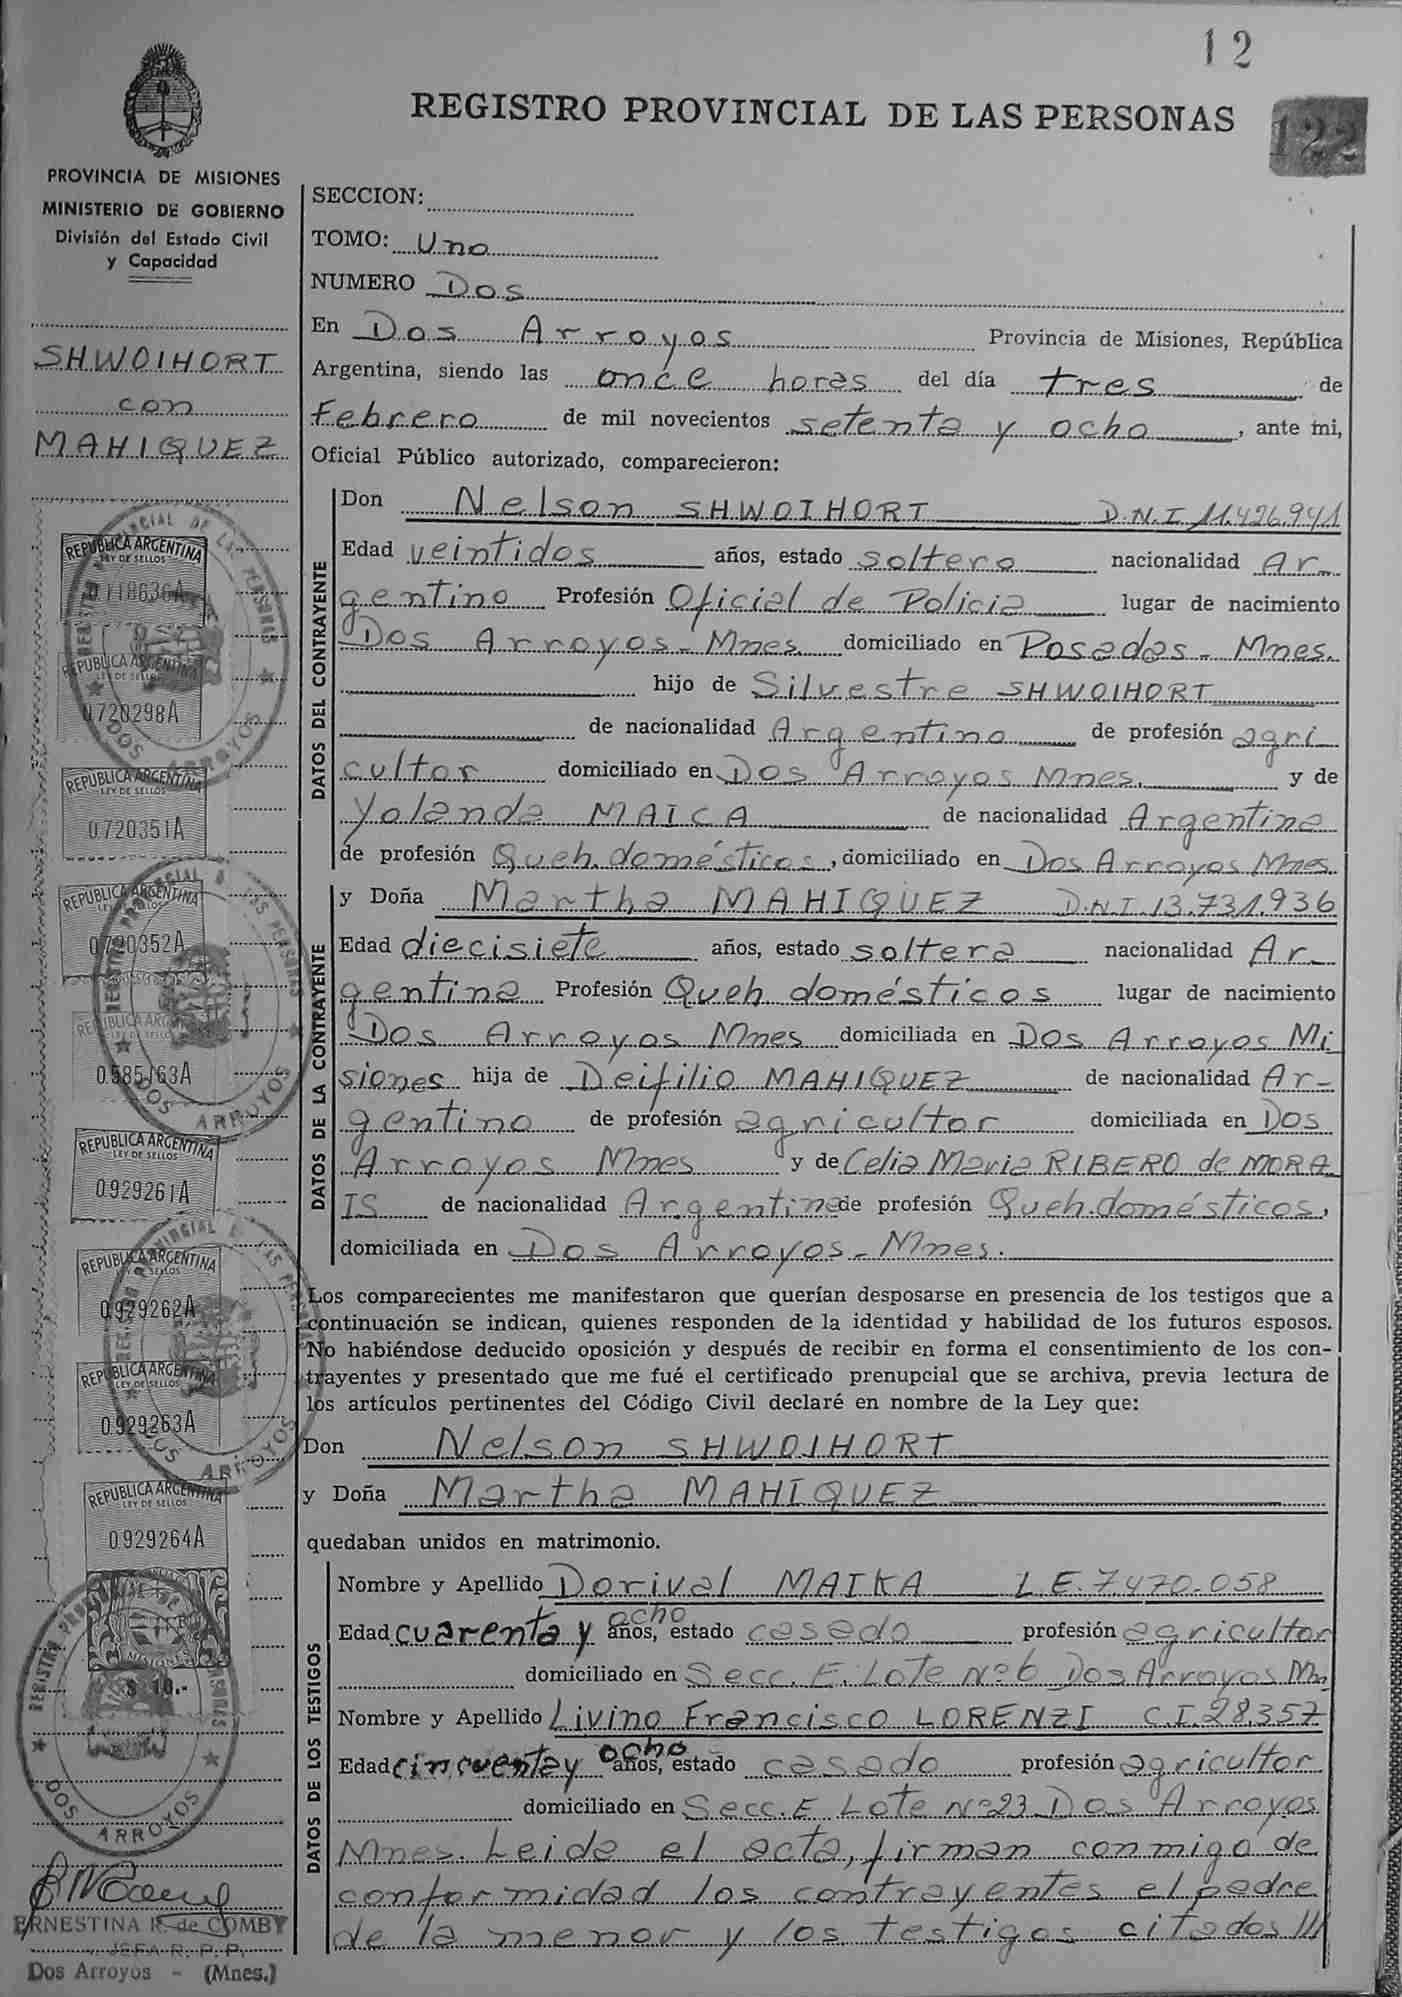 12
REGISTRO PROVINCIAL DE LAS PERSONAS
122
PROVINCIA DE MISIONES
MINISTERIO DE GOBIERNO
División del Estado Civil
y Capacidad
SHWOIHORT
con
MAHIQUEZ
REPUBLICA ARGENTINA
LEY DE SELLOS
0.718636A
REPUBLICA ARGENTINA
LEY DE SELLOS
0.720298A
DOS ARROYOS
REPUBLICA ARGENTINA
LEY DE SELLOS
0.720351A
REPUBLICA ARGENTINA
0.720352A
REPUBLICA ARGENTINA
LEY DE SELLOS
0.585763A
DOS ARROYOS
REPUBLICA ARGENTINA
LEY DE SELLOS
0.929261A
REPUBLICA ARGENTINA
LEY DE SELLOS
0.929262A
REPUBLICA ARGENTINA
LEY DE SELLOS
0.929263A
DOS ARROYOS
REPUBLICA ARGENTINA
LEY DE SELLOS
0.929264A
MISIONES
$ 10.-
DOS ARROYOS
ERNESTINA R. de COMBY
JEFA R. P. P.
Dos Arroyos - (Mnes.)
SECCION:
TOMO: Uno
NUMERO Dos
En Dos Arroyos Provincia de Misiones, República
Argentina, siendo las once horas del día tres de
Febrero de mil novecientos setenta y ocho, ante mi,
Oficial Público autorizado, comparecieron:
DATOS DEL CONTRAYENTE
Don Nelson SHWOIHORT D.N.I 11.426.941
Edad veintidos años, estado soltero nacionalidad Ar-
gentino Profesión Oficial de Policia lugar de nacimiento
Dos Arroyos - Mnes. domiciliado en Posadas - Mnes.
hijo de Silvestre SHWOIHORT
de nacionalidad Argentino de profesión agri
cultor domiciliado en Dos Arroyos Mnes. y de
Yolanda MAICA de nacionalidad Argentina
de profesión Queh. domésticos, domiciliado en Dos Arroyos Mnes.
DATOS DE LA CONTRAYENTE
y Doña Martha MAHIQUEZ D.N.I. 13.731.936
Edad diecisiete años, estado soltera nacionalidad Ar-
gentina Profesión Queh domésticos lugar de nacimiento
Dos Arroyos Mnes domiciliada en Dos Arroyos Mi
siones hija de Deifilio MAHIQUEZ de nacionalidad Ar-
gentino de profesión agricultor domiciliada en Dos
Arroyos Mnes y de Celia Maria RIBERO de MORA
IS de nacionalidad Argentina de profesión Queh. domésticos,
domiciliada en Dos Arroyos - Mnes.
Los comparecientes me manifestaron que querían desposarse en presencia de los testigos que a
continuación se indican, quienes responden de la identidad y habilidad de los futuros esposos.
No habiéndose deducido oposición y después de recibir en forma el consentimiento de los con-
trayentes y presentado que me fué el certificado prenupcial que se archiva, previa lectura de
los artículos pertinentes del Código Civil declaré en nombre de la Ley que:
Don Nelson SHWOIHORT
y Doña Martha MAHIQUEZ
quedaban unidos en matrimonio.
DATOS DE LOS TESTIGOS
Nombre y Apellido Dorival MAIKA L.E. 7.470.058
Edad cuarenta y ocho años, estado casado profesión agricultor
domiciliado en Secc. E. Lote Nº 6 Dos Arroyos Mn
Nombre y Apellido Livino Francisco LORENZI C.I. 28.357
Edad cincuenta y ocho años, estado casado profesión agricultor
domiciliado en Secc. E Lote Nº 23 Dos Arroyos
Mnes. Leida el acta, firman conmigo de
conformidad los contrayentes el padre
de la menor y los testigos citados ///